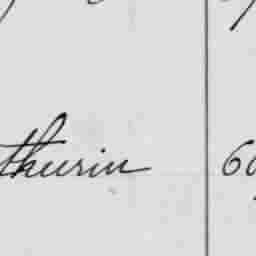 thurin 60